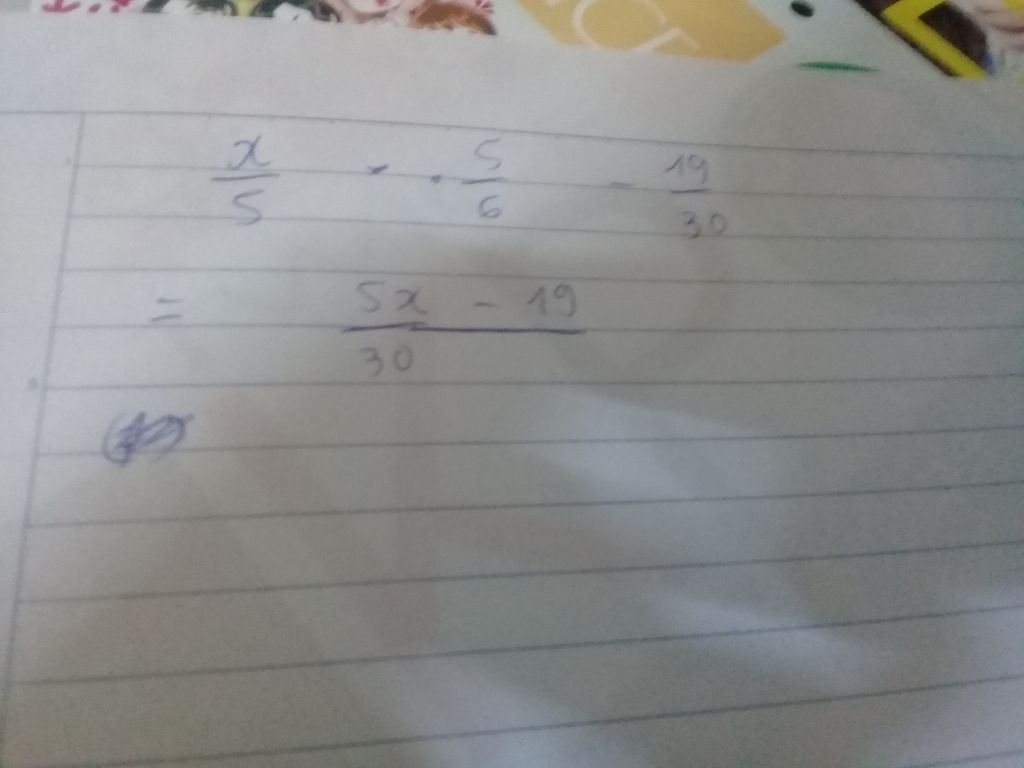 ICE
x/5 - · 5/6 - 19/30
= 5x - 19/30